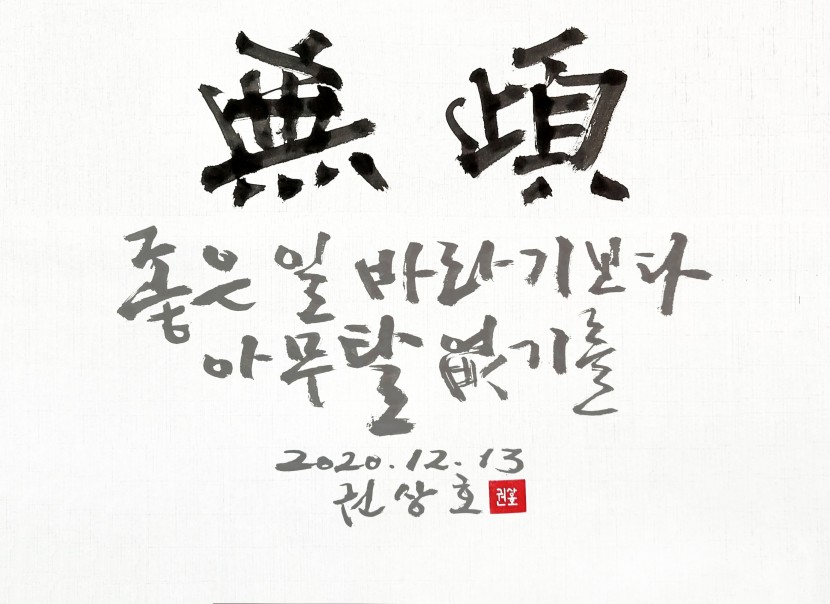 無頉
좋은 일 바라기보다
아무탈 없기를
2020.12.13
권상호